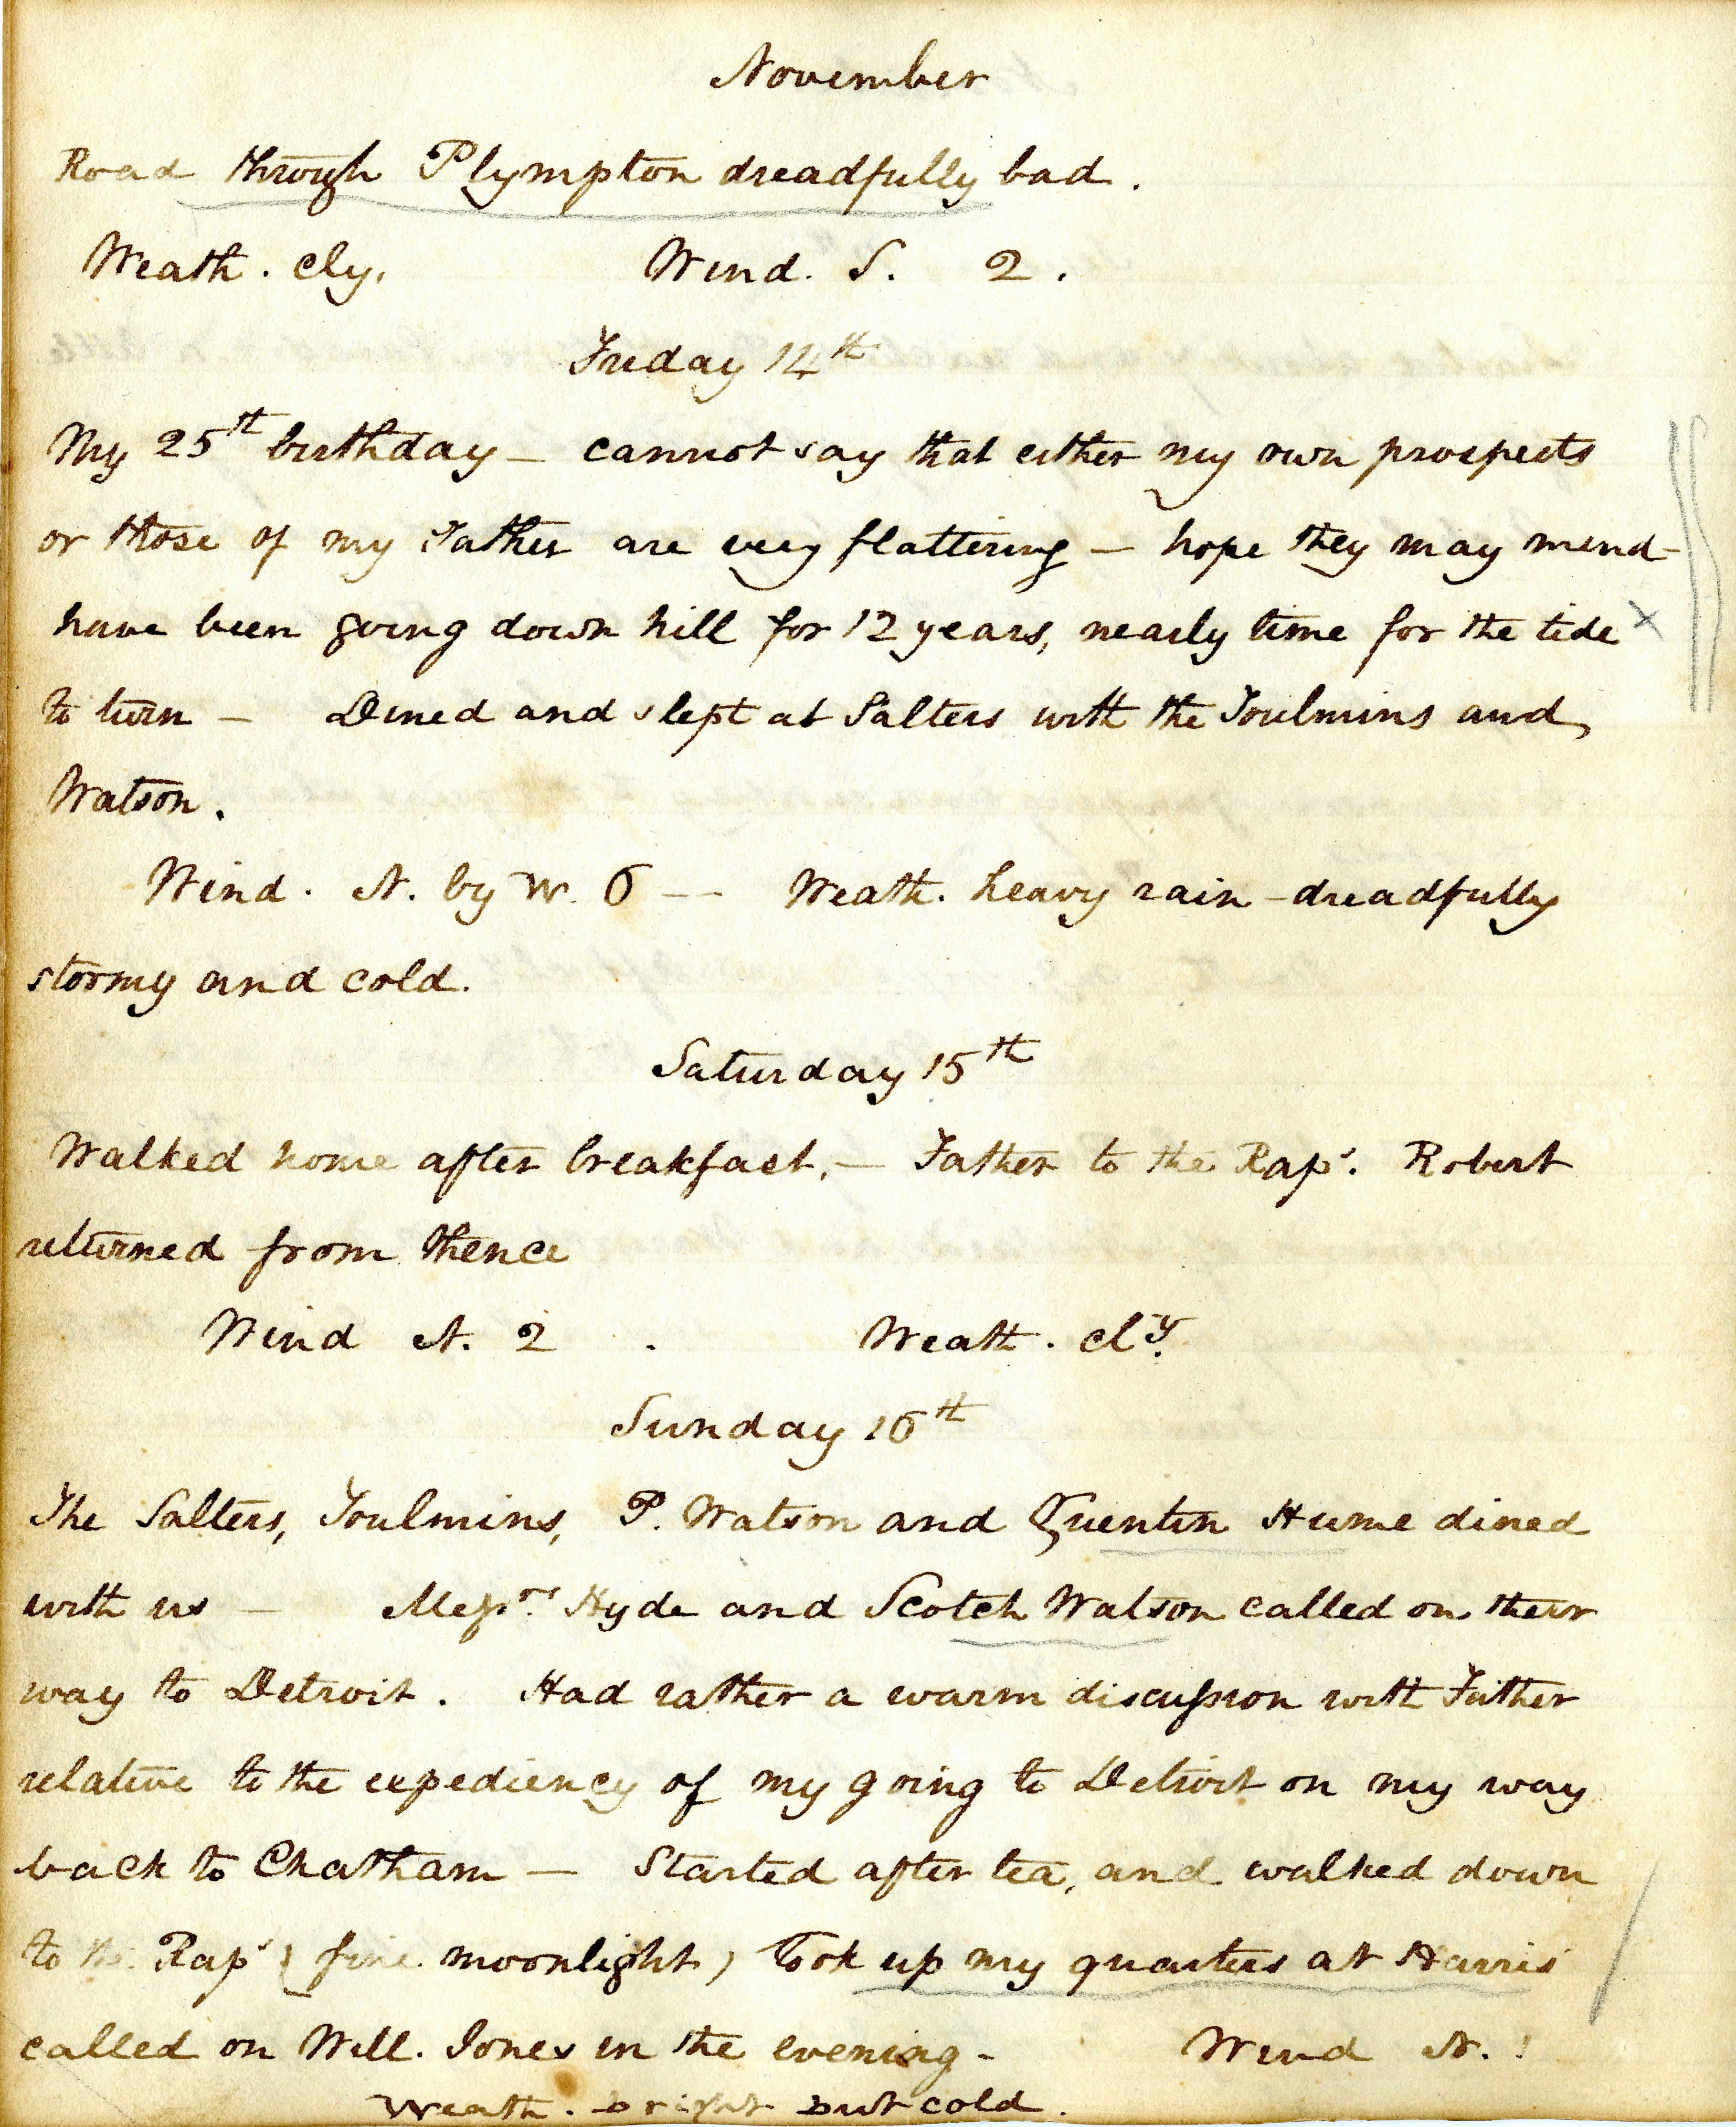 November
Road through Plympton dreadfully bad.
Weath. cly. Wind. S. 2.
Friday 14th
My 25th birthday – cannot say that either my own prospects
or those of my Father are very flattering – hope they may mend –
have been going down hill for 12 years, nearly time for the tide x
to turn – Dined and slept at Salters with the Toulmins and
Watson.
Wind. N. by W. 6 –– Weath. heavy rain – dreadfully
stormy and cold.
Saturday 15th
Walked home after breakfast, – Father to the Raps. Robert
returned from thence
Wind N. 2 . Weath. cly.
Sunday 16th
The Salters, Toulmins, P. Watson and Quentin Hume dined
with us – Messrs. Hyde and Scotch Watson called on their
way to Detroit. Had rather a warm discussion with Father
relative to the expediency of my going to Detroit on my way
back to Chatham – Started after tea, and walked down
to the Raps (fine moonlight) Took up my quarters at Harris'
called on Will. Jones in the evening – Wind N.
Weath. bright but cold.